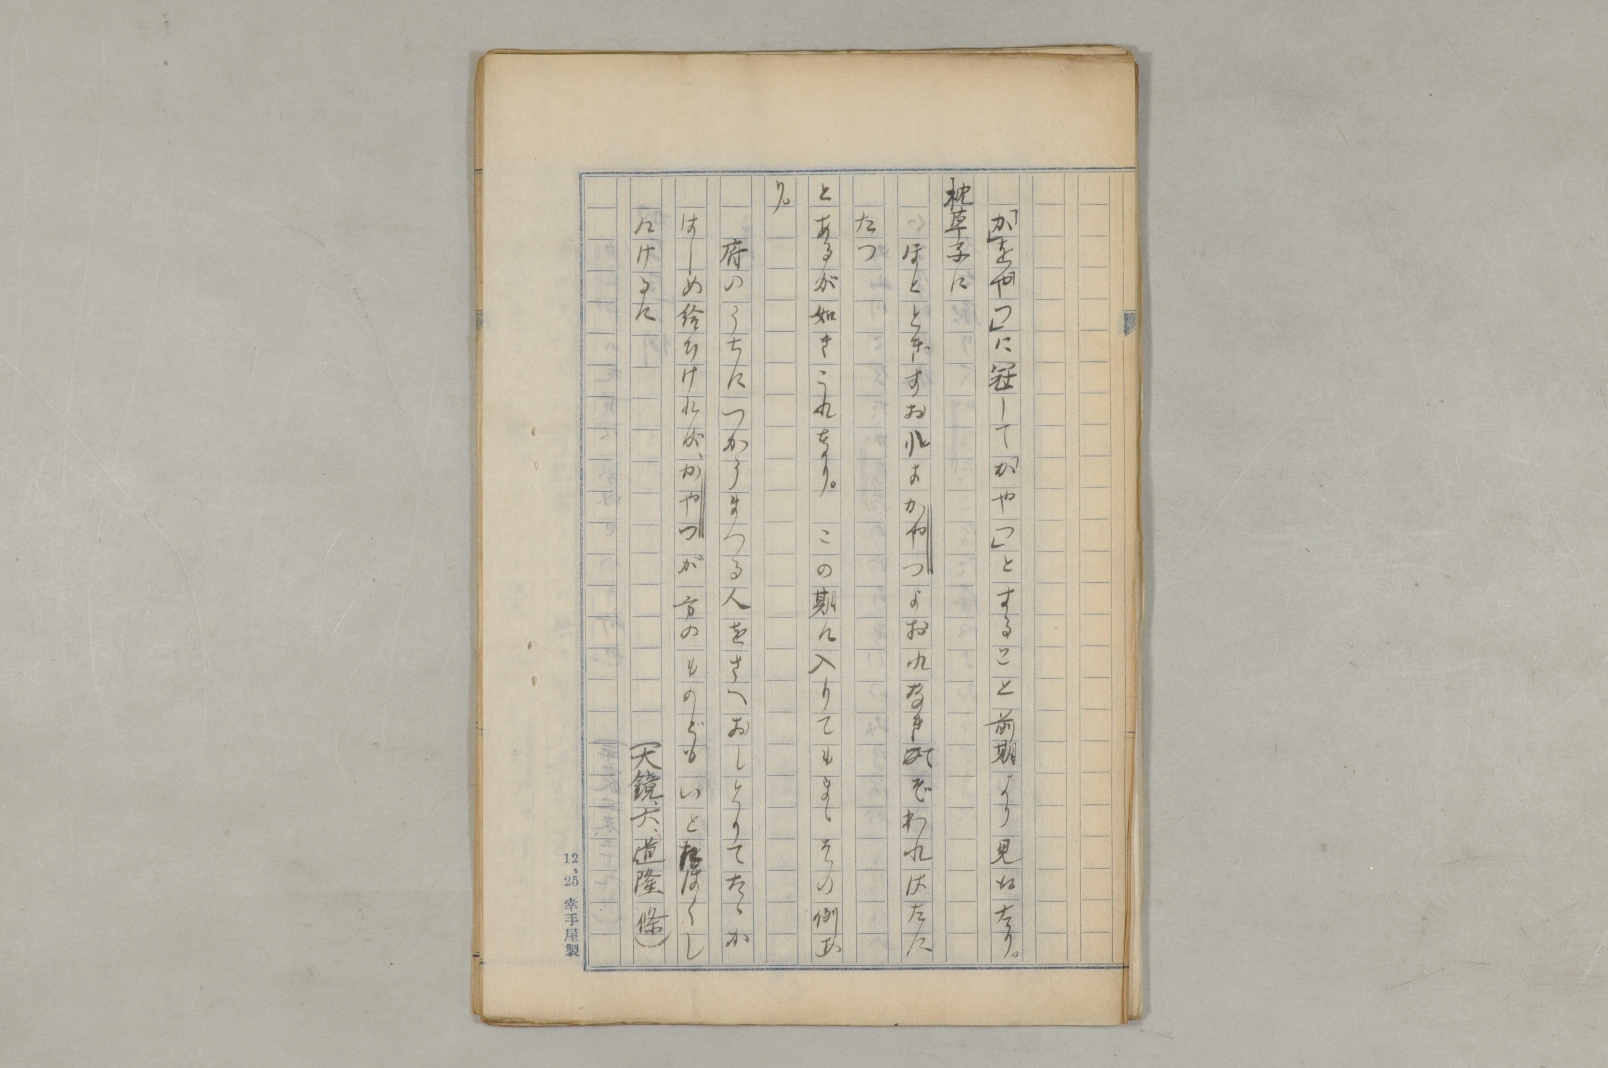 「か」を「やつ」に冠して「かやつ」とすること前期より見えたり。
枕草子に
ほととぎすおれよかやつよおれなきてぞわれはたに
たつ
とあるが如きこれなり。この期に入りてもまゝその例あ
り。
府のうちにつかうまつる人をさへおしとりてたゝか
はしめ給ひければ、かやつが方のものどもいとたはくし
にけるに
（大鏡、六、道隆條）
12、25 幸手屋製